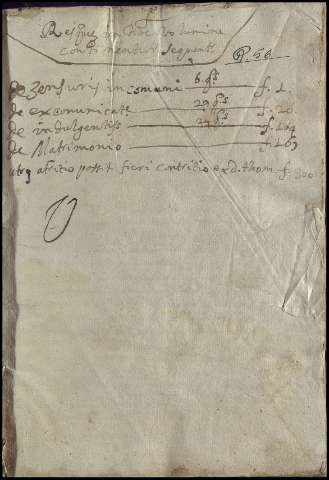 Res quę in hoc volumine
continentur sequent
P. 56
de zensuris in comuni 6. qs f. 1.
de excomunicate 29 qs f. 20
de indulgentiis 24 qs f. 109
de Matrimonio f. 163
utrq atritio possit fieri contritio ex d. thom f. 300